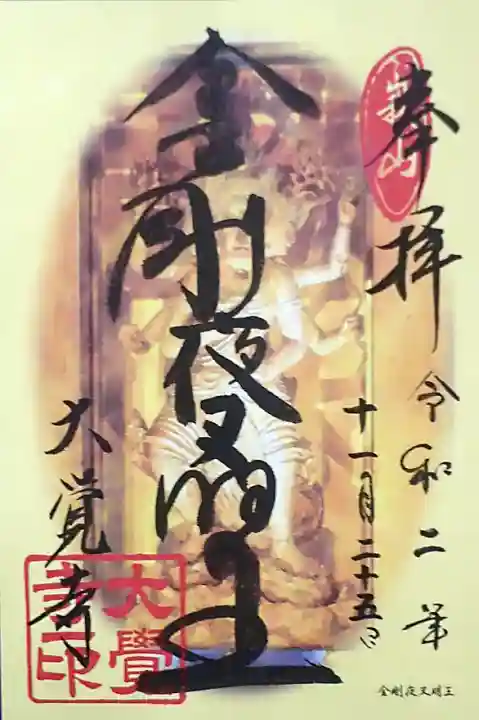 奉拝
令和二年
十一月二十五日
金剛夜叉明王
大覚寺
大覺
寺印
金剛夜叉明王